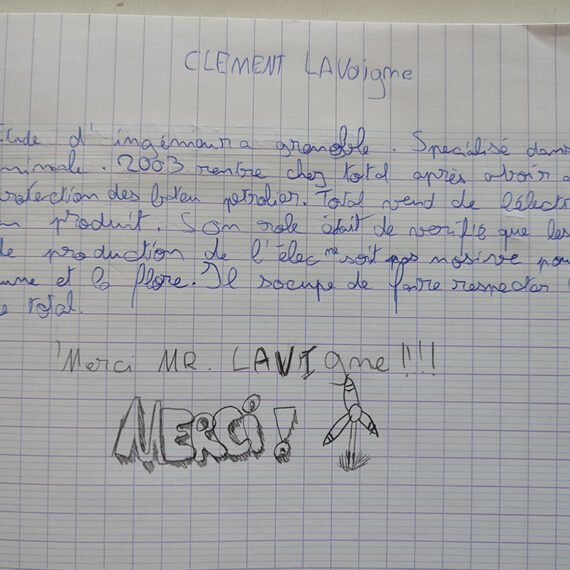 CLEMENT LAVoigne
Etude d'ingénieur a grenoble. Spécialisé dans
nimale. 2003 rentre chez total après avoir
rotection des bateu petrolier. Total vend de l'élect
produit. Son role était de verifié que les
de production de l'élec ne soit pas nosive pou
et la flore. Il socupe de faire respecter
total.
Merci MR. LAVIgne!!!
MERCI!